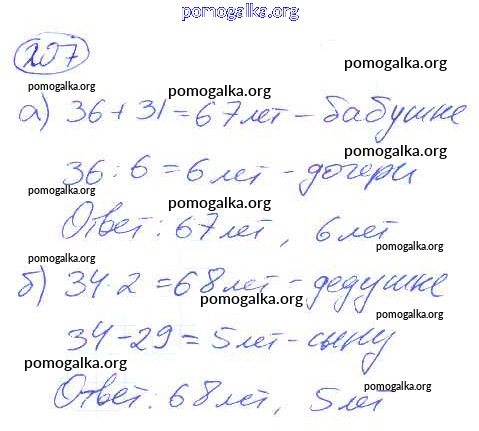 pomogalka.org
207
pomogalka.org
pomogalka.org
pomogalka.org
а) 36 + 31 = 67 лет - бабушке
pomogalka.org
36 : 6 = 6 лет - дочери
pomogalka.org
pomogalka.org
Ответ : 67 лет, 6 лет
pomogalka.org
pomogalka.org
б) 34 · 2 = 68 лет - дедушке
pomogalka.org
pomogalka.org
34 - 29 = 5 лет - сыну
pomogalka.org
pomogalka.org
Ответ : 68 лет, 5 лет